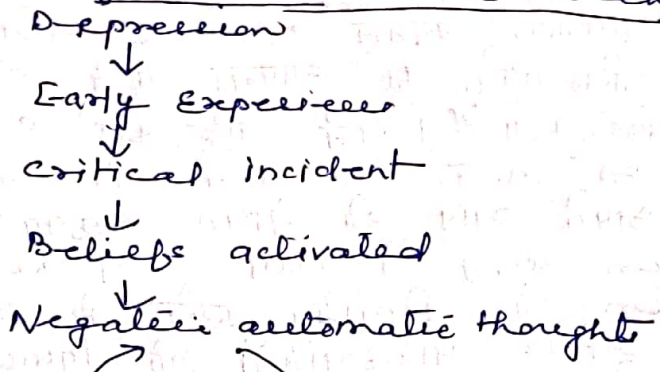 Depression
↓
Early Experiences
↓
Critical incident
↓
Beliefs activated
↓
Negative automatic thoughts